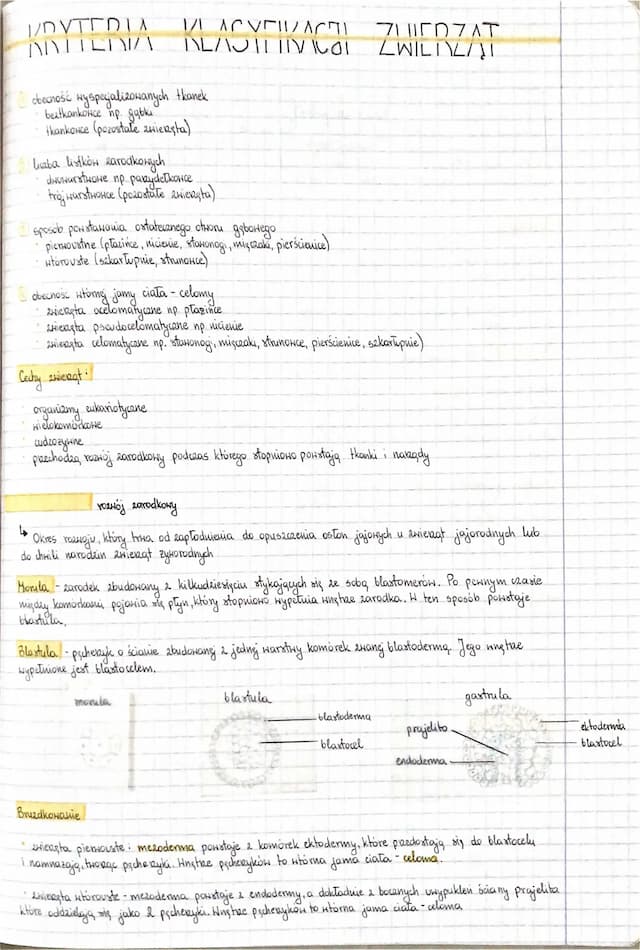 KRYTERIA KLASYFIKACJI ZWIERZĄT
obecność wyspecjalizowanych tkanek
· beztkankowce np. gąbki
· tkankowce (pozostałe zwierzęta)
liczba listków zarodkowych
· dwuwarstwowe np. parzydełkowce
· trójwarstwowce (pozostałe zwierzęta)
sposób powstawania ostatecznego otworu gębowego
· pierwouste (płazińce, nicienie, stawonogi, mięczaki, pierścienice)
· wtórouste (szkarłupnie, strunowce)
obecność wtórnej jamy ciała - celomy
· zwierzęta acelomatyczne np. płazińce
· zwierzęta pseudocelomatyczne np. nicienie
· zwierzęta celomatyczne np. stawonogi, mięczaki, strunowce, pierścienice, szkarłupnie)
Cechy zwierząt:
· organizmy eukariotyczne
· wielokomórkowe
· cudzożywne
· przechodzą rozwój zarodkowy podczas którego stopniowo powstają tkanki i narządy
rozwój zarodkowy
↳ Okres rozwoju, który trwa od zapłodnienia do opuszczenia osłon jajowych u zwierząt jajorodnych lub
do chwili narodzin zwierząt żyworodnych
Morula - zarodek zbudowany z kilkudziesięciu stykających się ze sobą blastomerów. Po pewnym czasie
między komórkami pojawia się płyn, który stopniowo wypełnia wnętrze zarodka. W ten sposób powstaje
blastula.
Blastula - pęcherzyk o ścianie zbudowanej z jednej warstwy komórek zwanej blastodermą. Jego wnętrze
wypełnione jest blastocelem.
morula blastula gastrula
blastoderma
blastocel
prajelito
endoderma
ektoderma
blastocel
Bruzdkowanie
· zwierzęta pierwouste: mezoderma powstaje z komórek ektodermy, które przedostają się do blastocelu
i namnażają, tworząc pęcherzyki. Wnętrze pęcherzyków to wtórna jama ciała - celoma.
· zwierzęta wtórouste - mezoderma powstaje z endodermy, a dokładnie z bocznych uwypukleń ściany prajelita
które oddzielają się jako 2 pęcherzyki. Wnętrze pęcherzyków to wtórna jama ciała - celoma